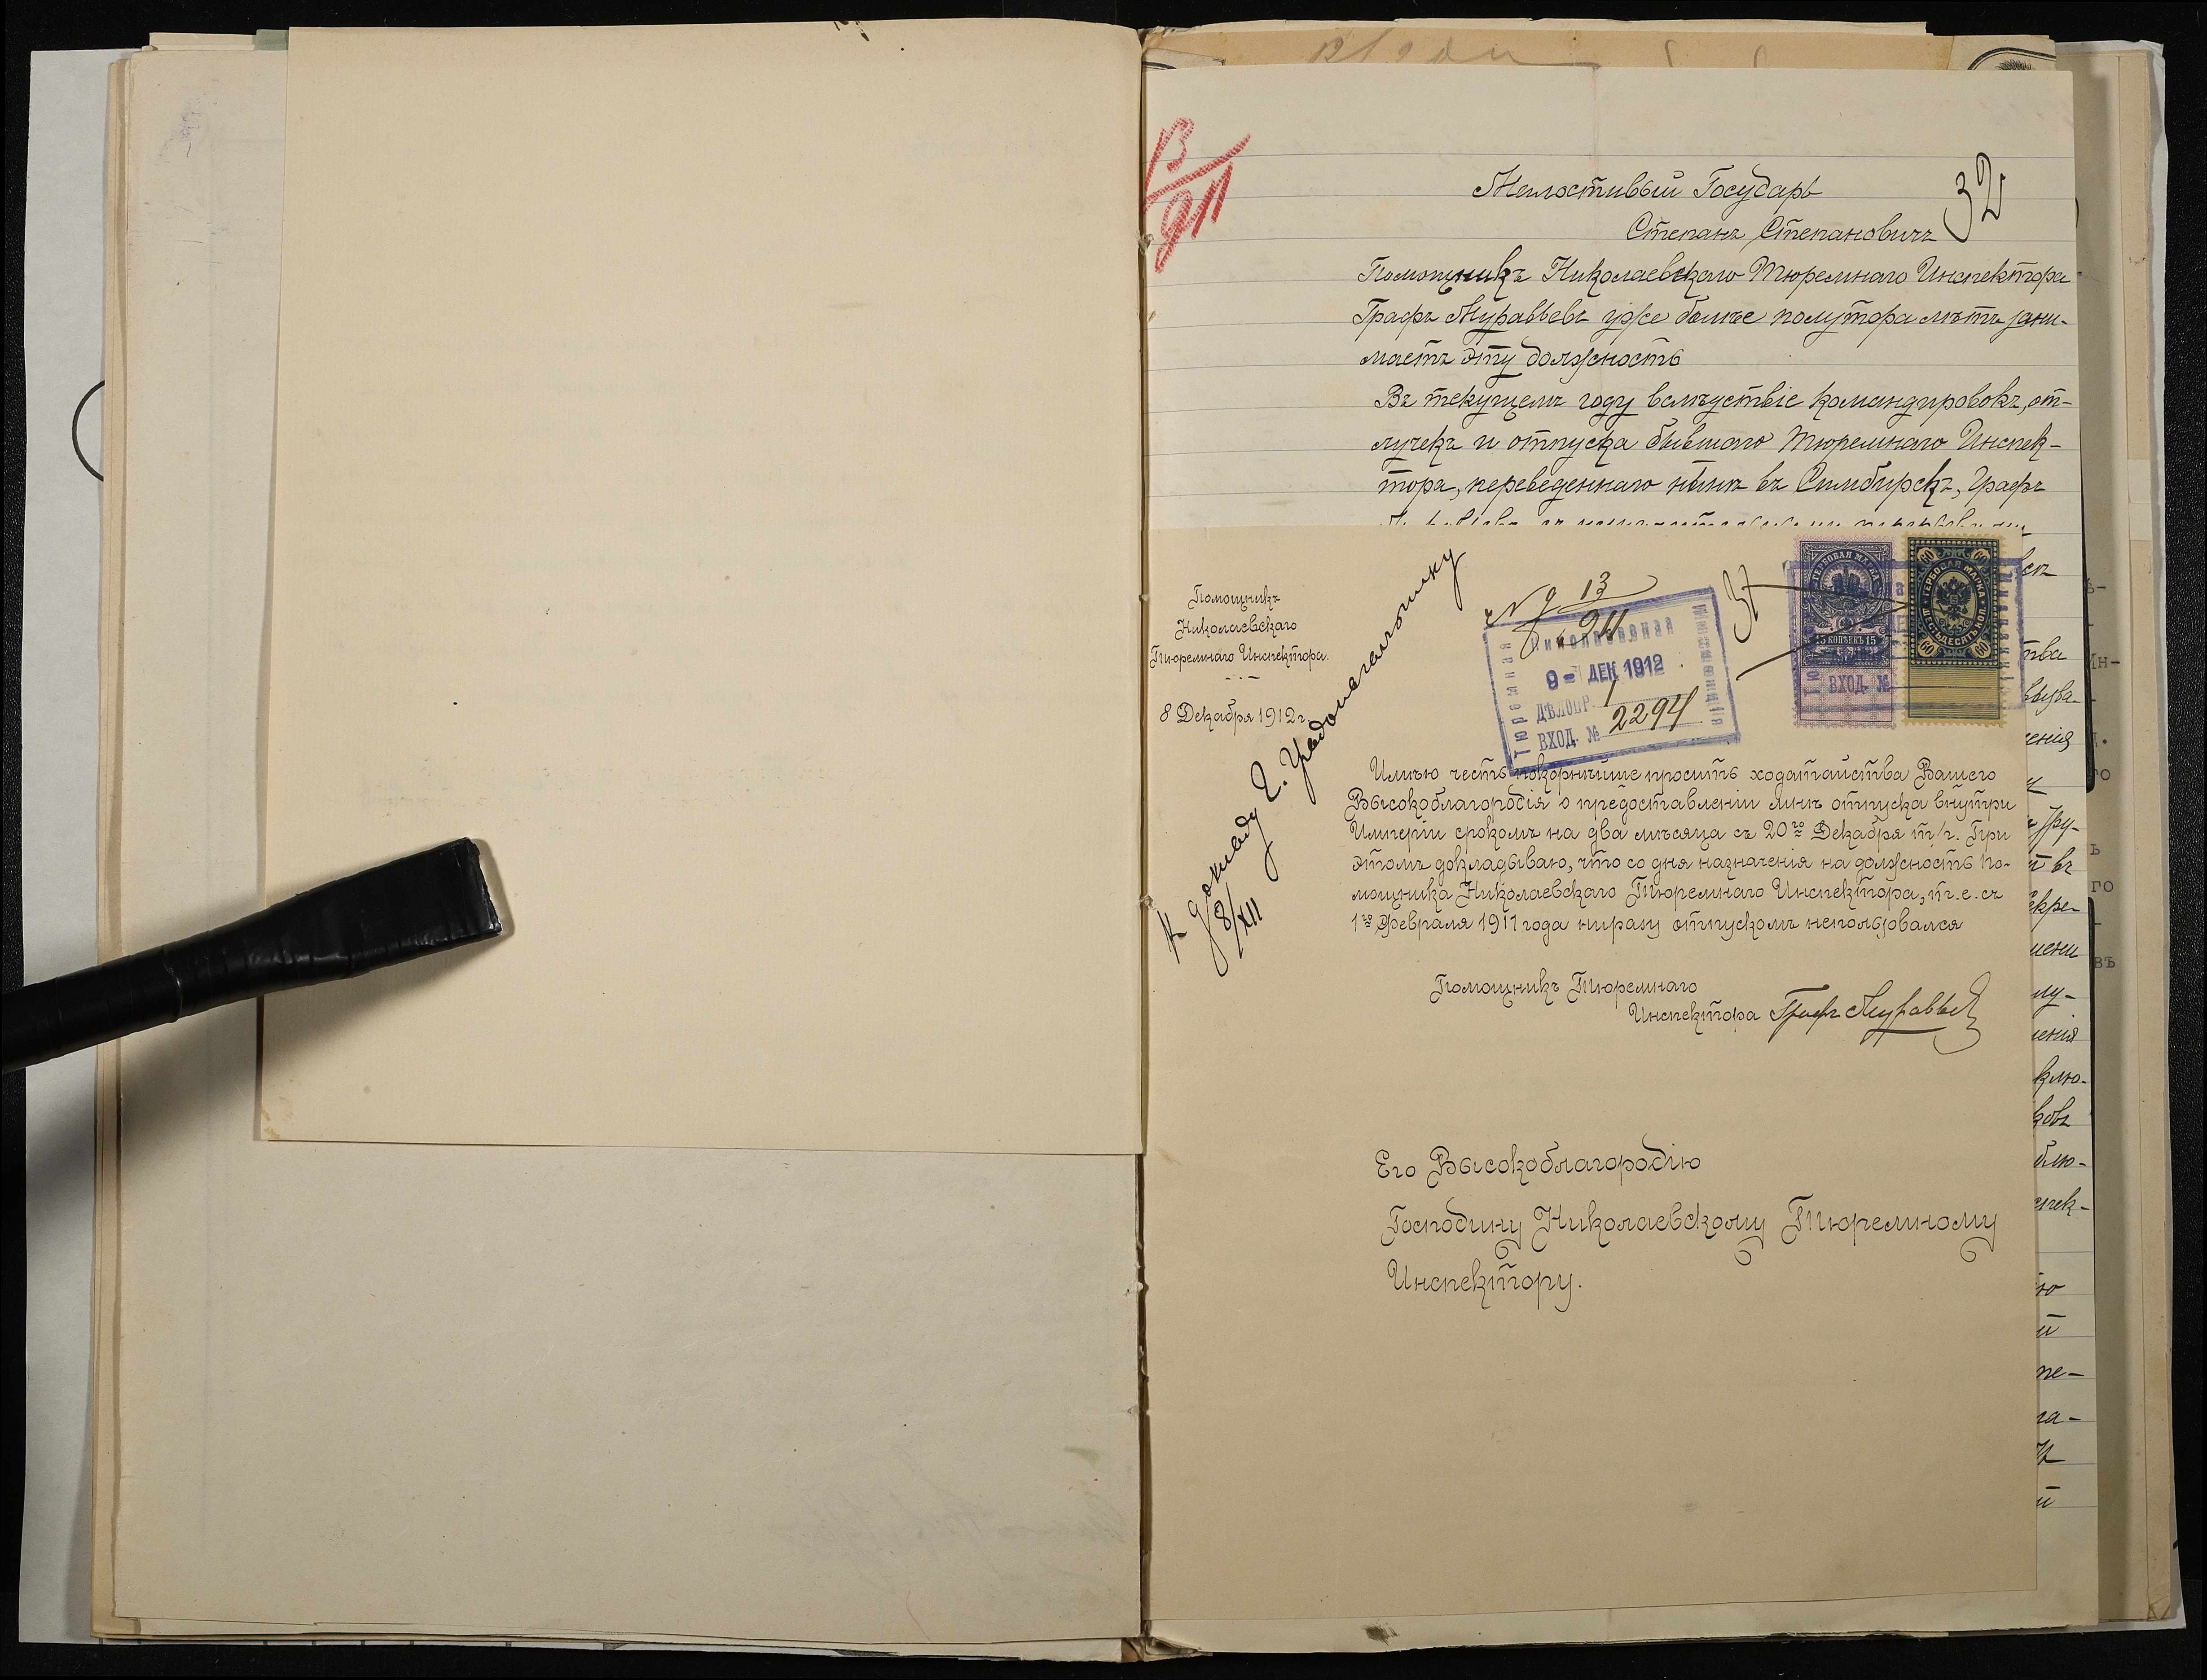 13/911
32
Милостивый Государь
Степанъ Степановичъ
Помощникъ Николаевскаго Тюремнаго Инспектора
Графъ Муравьевъ уже болѣе полутора лѣтъ зани-
маетъ эту должность
Въ текущемъ году вслѣдствіе командировокъ, от-
лучекъ и отпуска бывшаго Тюремнаго Инспек-
тора, переведеннаго нынѣ въ Симбирскъ, Графъ
Помощникъ
Николаевскаго
Тюремнаго Инспектора.
8 Декабря 1912 г.
К докладу Г. Градоначальнику
8/XII
№ 13
911
31
Николаевская
Тюремная
Инспекція
9 - ДЕК 1912
ДѢЛОПР. 1
ВХОД. № 2294
ГЕРБОВАЯ МАРКА
15 КОПѢЕКЪ 15
ВХОД. №
60 60
ГЕРБОВАЯ МАРКА
ШЕСТЬДЕСЯТЪ КОП.
60 60
Имѣю честь покорнѣйше просить ходатайства Вашего
Высокоблагородія о предоставленіи мнѣ отпуска внутри
Имперіи срокомъ на два мѣсяца съ 20го Декабря т/г. При
этомъ докладываю, что со дня назначенія на должность по-
мощника Николаевскаго Тюремнаго Инспектора, т. е. съ
1го Февраля 1911 года ниразу отпускомъ непользовался
Помощникъ Тюремнаго
Инспектора Графъ Муравьев
Его Высокоблагородію
Господину Николаевскому Тюремному
Инспектору.